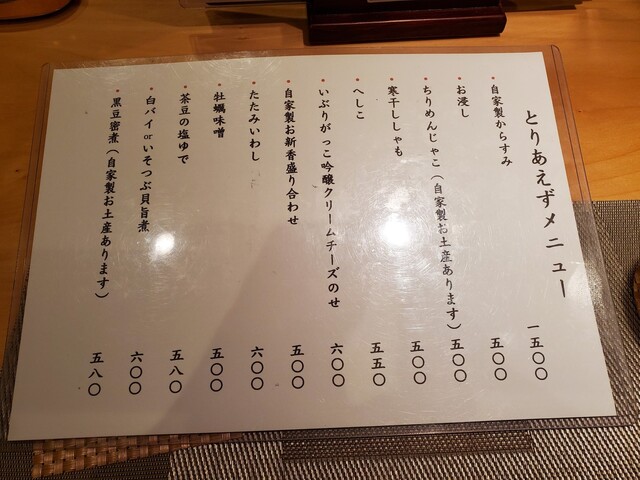 とりあえずメニュー
・自家製からすみ 一五〇〇
・お浸し 五〇〇
・ちりめんじゃこ（自家製お土産あります） 五〇〇
・寒干ししゃも 五〇〇
・へしこ 五五〇
・いぶりがっこ吟醸クリームチーズのせ 六〇〇
・自家製お新香盛り合わせ 五〇〇
・たたみいわし 六〇〇
・牡蠣味噌 五〇〇
・茶豆の塩ゆで 五八〇
・白バイorいそつぶ貝旨煮 六〇〇
・黒豆密煮（自家製お土産あります） 五八〇